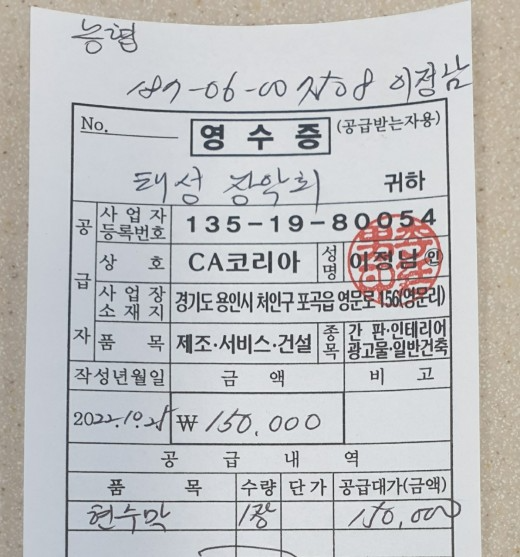 농협
이정남
No.
영수증 (공급받는자용)
태성 장학회 귀하
공급자
사업자등록번호 135-19-80054
상 호 CA코리아 성명 이정남 ㊞
사업장소재지 경기도 용인시 처인구 포곡읍 영문로 156(영문리)
품 목 제조·서비스·건설 종목 간판·인테리어
광고물·일반건축
작성년월일 금 액 비 고
2022.10.25 ₩ 150.000
공 급 내 역
품 목 수량 단가 공급대가(금액)
현수막 1장 150,000